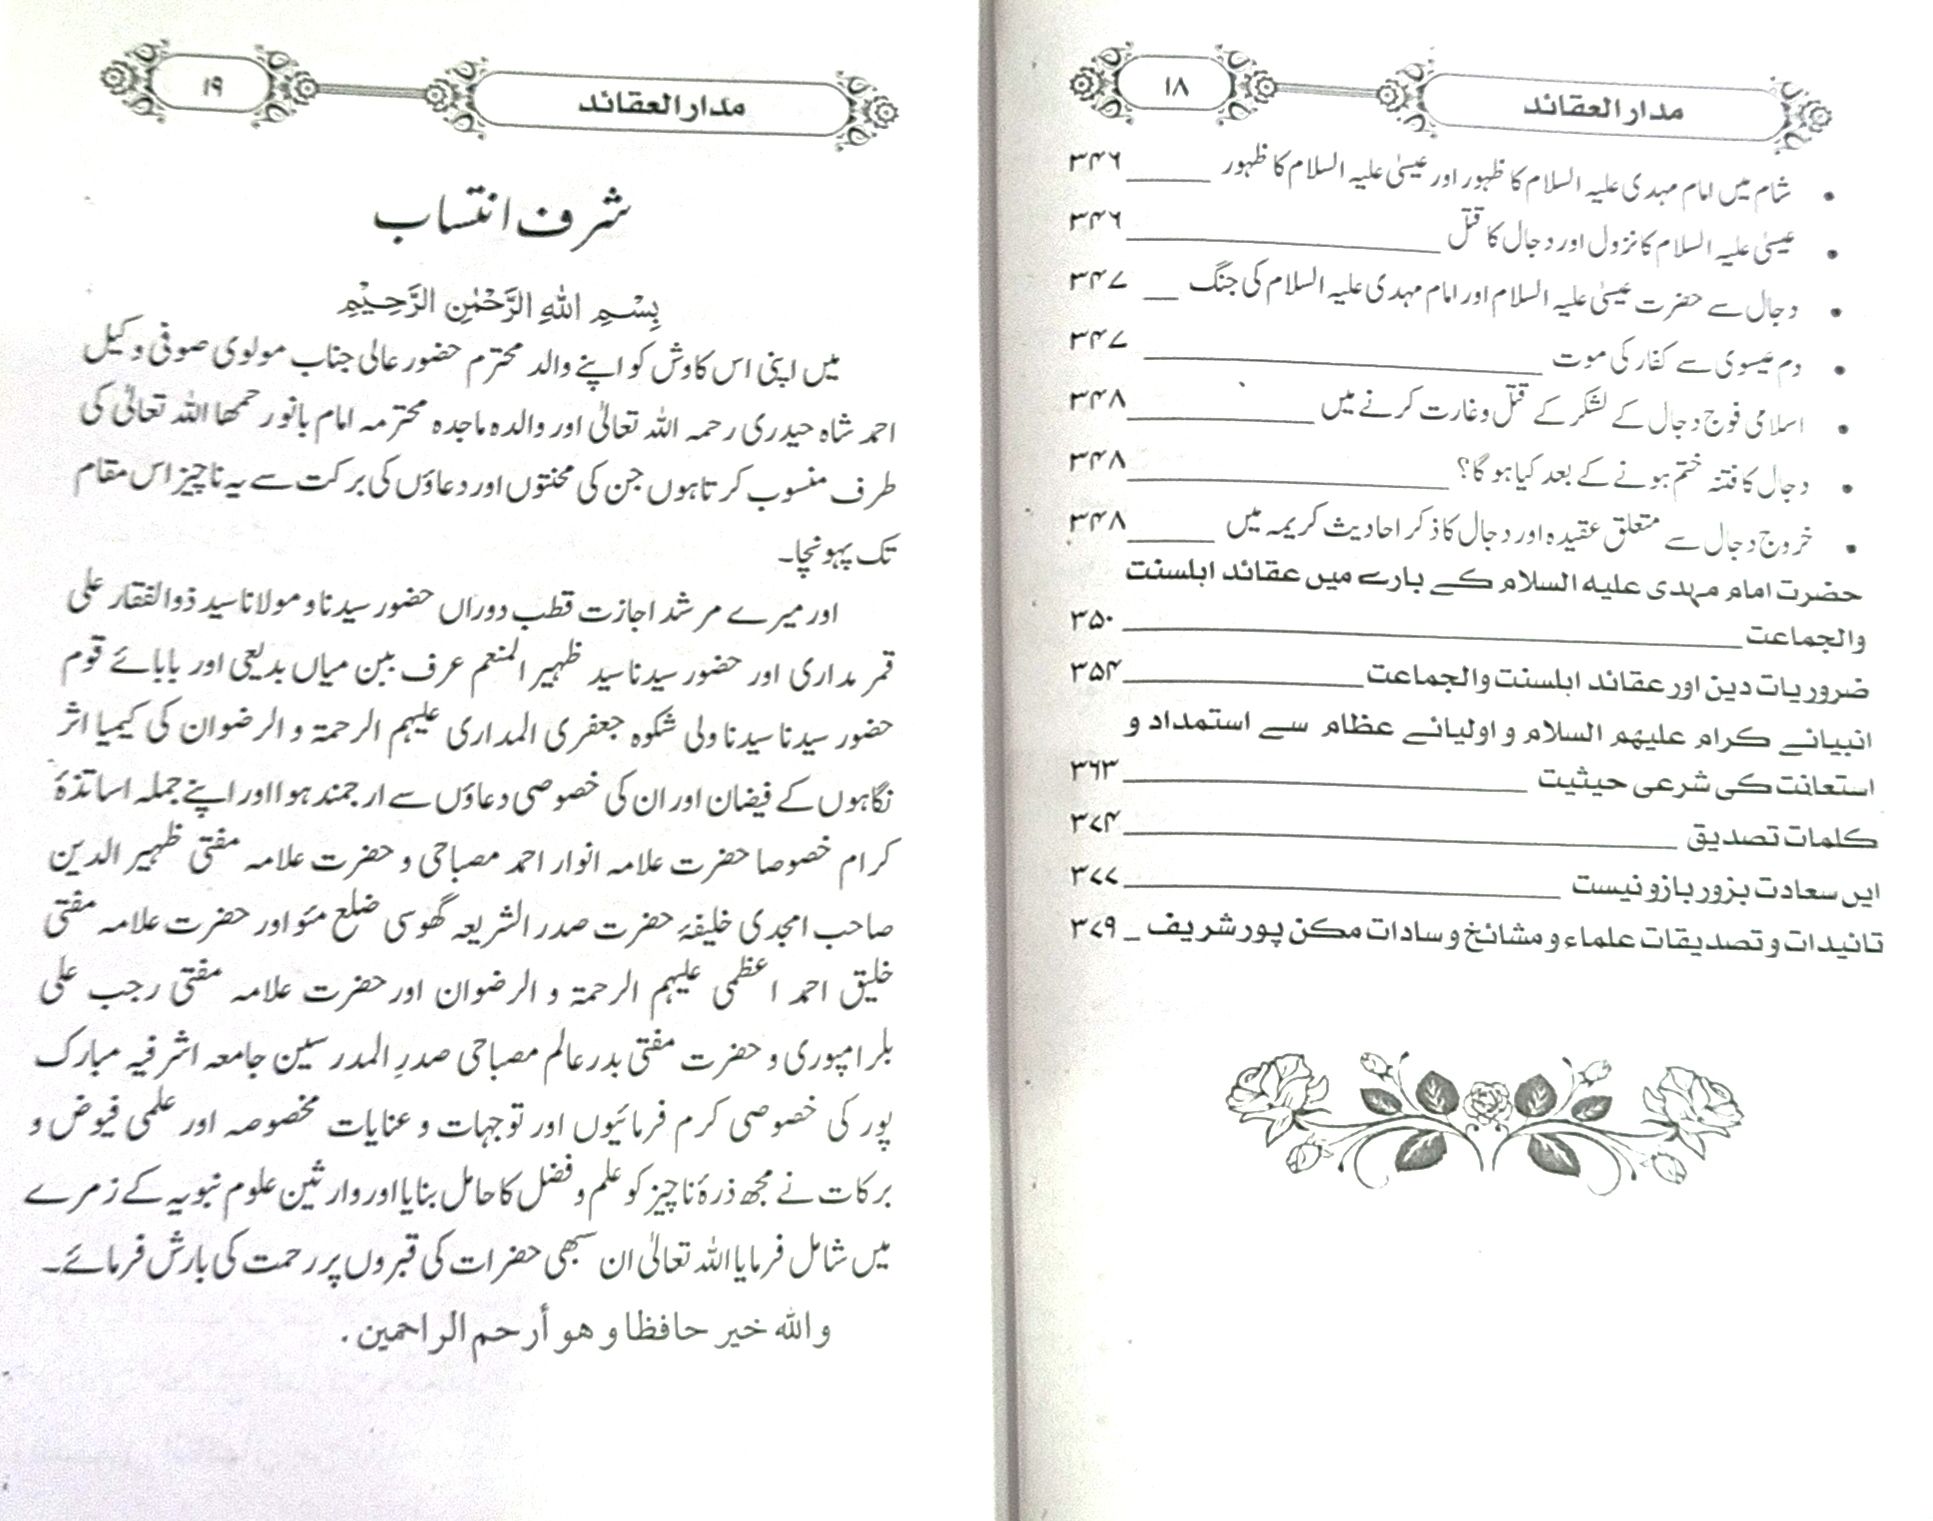 مدار العقائد
۱۸
• شام میں امام مہدی علیہ السلام کا ظہور اور عیسیٰ علیہ السلام کا ظہور ____ ۳۴۶
• عیسیٰ علیہ السلام کا نزول اور دجال کا قتل ____ ۳۴۶
• دجال سے حضرت عیسیٰ علیہ السلام اور امام مہدی علیہ السلام کی جنگ __ ۳۴۷
• دم عیسوی سے کفار کی موت ____ ۳۴۷
• اسلامی فوج دجال کے لشکر کے قتل و غارت کرنے میں ____ ۳۴۸
• دجال کا فتنہ ختم ہونے کے بعد کیا ہوگا؟ ____ ۳۴۸
• خروج دجال سے متعلق عقیدہ اور دجال کا ذکر احادیث کریمہ میں ____ ۳۴۸
حضرت امام مہدی علیہ السلام کے بارے میں عقائد اہلسنت
والجماعت ____ ۳۵۰
ضروریات دین اور عقائد اہلسنت والجماعت ____ ۳۵۴
انبیائے کرام علیہم السلام و اولیائے عظام سے استمداد و
استعانت کی شرعی حیثیت ____ ۳۶۳
کلمات تصدیق ____ ۳۷۴
ایں سعادت بزور بازو نیست ____ ۳۷۷
تائیدات و تصدیقات علماء و مشائخ و سادات مکن پور شریف _ ۳۷۹
مدار العقائد
۱۹
شرف انتساب
بِسْمِ اللهِ الرَّحْمٰنِ الرَّحِيْمِ
میں اپنی اس کاوش کو اپنے والد محترم حضور عالی جناب مولوی صوفی وکیل
احمد شاہ حیدری رحمہ اللہ تعالیٰ اور والدہ ماجدہ محترمہ امام بانو رحمھا اللہ تعالیٰ کی
طرف منسوب کرتا ہوں جن کی محنتوں اور دعاؤں کی برکت سے یہ ناچیز اس مقام
تک پہونچا۔
اور میرے مرشد اجازت قطب دوراں حضور سیدنا و مولانا سید ذوالفقار علی
قمر مداری اور حضور سیدنا سید ظہیر المنعم عرف ببن میاں بدیعی اور بابائے قوم
حضور سیدنا سیدنا ولی شکوہ جعفری المداری علیہم الرحمۃ و الرضوان کی کیمیا اثر
نگاہوں کے فیضان اور ان کی خصوصی دعاؤں سے ارجمند ہوا اور اپنے جملہ اساتذۂ
کرام خصوصا حضرت علامہ انوار احمد مصباحی و حضرت علامہ مفتی ظہیر الدین
صاحب امجدی خلیفۂ حضرت صدر الشریعہ گھوسی ضلع مئو اور حضرت علامہ مفتی
خلیق احمد اعظمی علیہم الرحمۃ و الرضوان اور حضرت علامہ مفتی رجب علی
بلرامپوری و حضرت مفتی بدر عالم مصباحی صدرِ المدرسین جامعہ اشرفیہ مبارک
پور کی خصوصی کرم فرمائیوں اور توجہات و عنایات مخصوصہ اور علمی فیوض و
برکات نے مجھ ذرۂ ناچیز کو علم و فضل کا حامل بنایا اور وارثین علوم نبویہ کے زمرے
میں شامل فرمایا اللہ تعالیٰ ان سبھی حضرات کی قبروں پر رحمت کی بارش فرمائے۔
والله خیر حافظا و هو أرحم الراحمین .